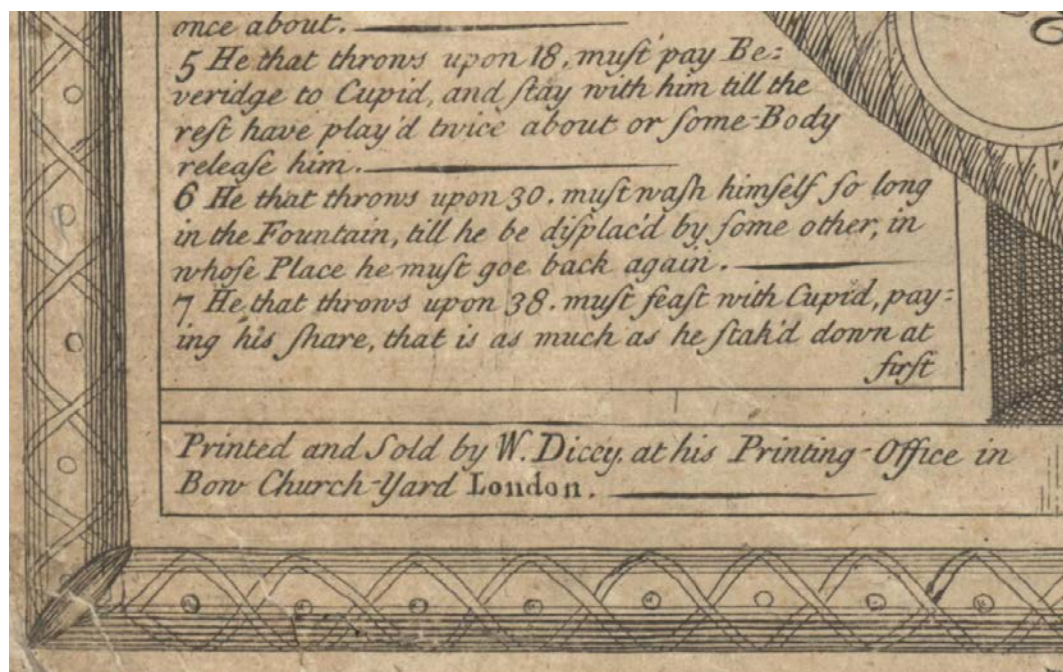 once about.
5 He that throws upon 18, muſt pay Be:
veridge to Cupid, and ſtay with him till the
reſt have play'd twice about or ſome-Body
releaſe him.
6 He that throws upon 30. muſt waſh himſelf ſo long
in the Fountain, till he be diſplac'd by ſome other, in
whoſe Place he muſt goe back again.
7 He that throws upon 38. muſt feaſt with Cupid, pay:
ing his ſhare, that is as much as he ſtak'd down at
firſt
Printed and Sold by W. Dicey, at his Printing-Office in
Bow Church-Yard London.